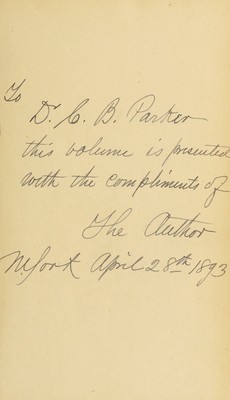 To
Dr. C. B. Parker
this volume is presented
with the compliments of
The Author
N. York April 28th 1893